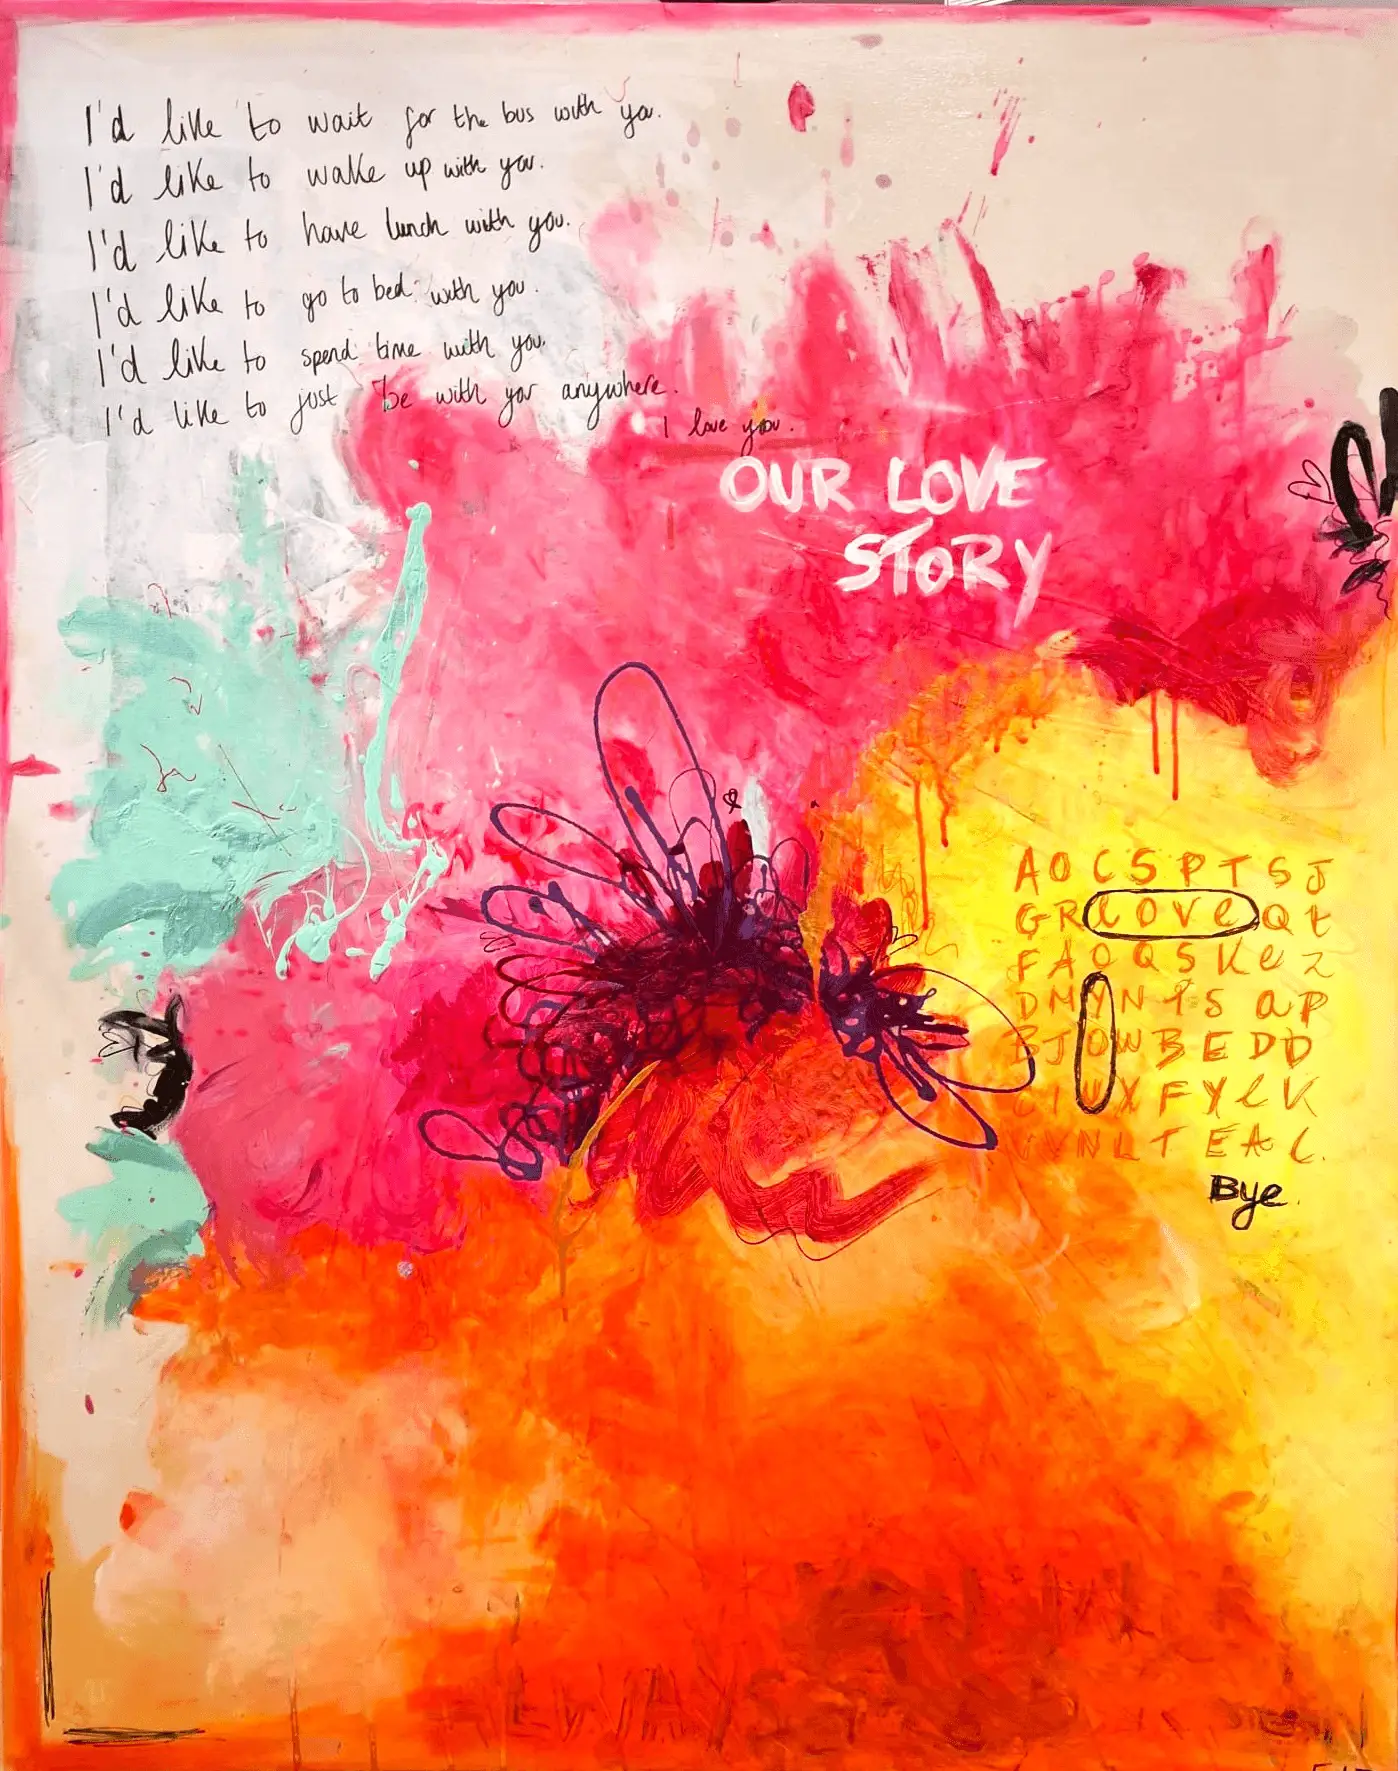 I'd like to wait for the bus with you.
I'd like to wake up with you.
I'd like to have lunch with you.
I'd like to go to bed with you.
I'd like to spend time with you.
I'd like to just be with you anywhere.
I love you.
OUR LOVE
STORY
A O C S P T S J
G R L O V e Q t
F A O Q S K e Z
D M Y N T S a P
B J O W B E D D
C I U X F Y L K
V N L T E A L.
Bye.
ALWAYS